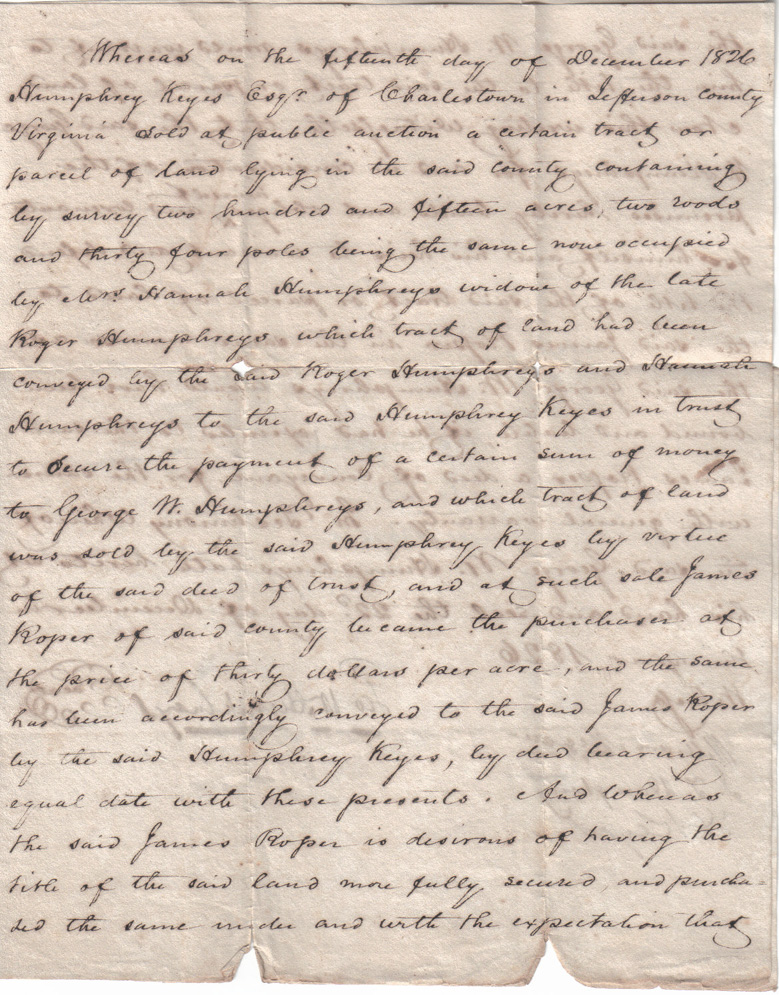 Whereas on the fifteenth day of December 1826
Humphrey Keyes Esqr. of Charlestown in Jefferson county
Virginia sold at public auction a certain tract or
parcel of land lying in the said county containing
by survey two hundred and fifteen acres, two roods
and thirty four poles being the same now occupied
by Mrs Hannah Humphreys widow of the late
Roger Humphreys which tract of land had been
conveyed by the said Roger Humphreys and Hannah
Humphreys to the said Humphrey Keyes in trust
to secure the payment of a certain sum of money
to George W. Humphreys, and which tract of land
was sold by the said Humphrey Keyes by virtue
of the said deed of trust, and at such sale James
Roper of said county became the purchaser at
the price of thirty dollars per acre, and the same
has been accordingly conveyed to the said James Roper
by the said Humphrey Keyes, by deed bearing
equal date with these presents. And Whereas
the said James Roper is desirous of having the
title of the said land more fully secured, and purcha-
sed the same under and with the expectation that